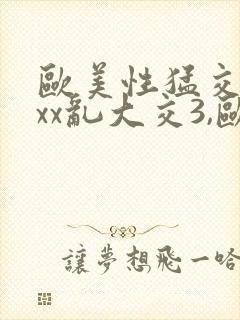 歐美性猛交
xx亂大交3,歐
讓夢想飛一哈